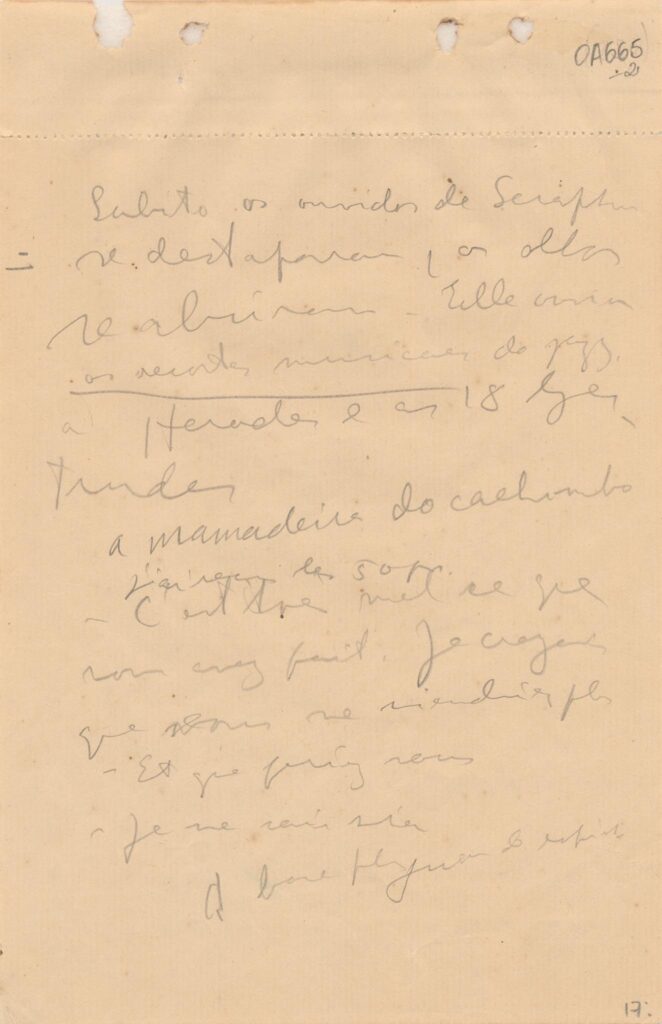 OA665
-2
Subito os ouvidos de Seraphim
= se destaparam, os olhos
se abriram - Elle ouviu
os recortes musicaes do jazz.
a Herodes e as 18 Ger-
trudes
a mamadeira do cachimbo
j'ai reçu les 50
- C'est très mal ce que
vous avez fait. Je croyais
que vous ne viendriez plus
- Et que feriez vous
- Je ne sais rien
A
17.